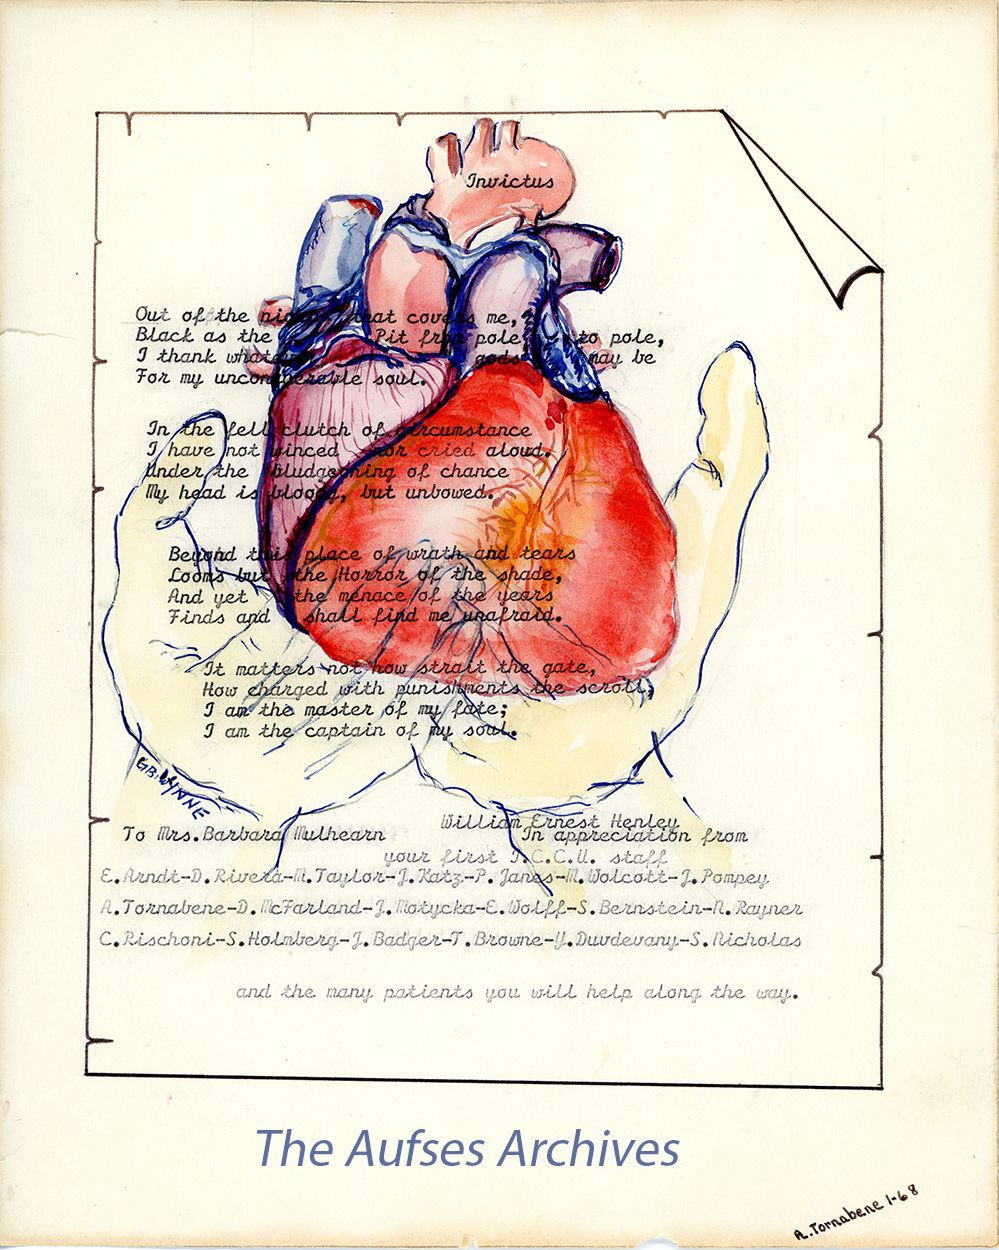 Invictus
Out of the night that covers me,
Black as the Pit from pole to pole,
I thank whatever gods may be
For my unconquerable soul.
In the fell clutch of circumstance
I have not winced nor cried aloud.
Under the bludgeoning of chance
My head is bloody, but unbowed.
Beyond this place of wrath and tears
Looms but the Horror of the shade,
And yet the menace of the years
Finds and shall find me unafraid.
It matters not how strait the gate,
How charged with punishments the scroll,
I am the master of my fate;
I am the captain of my soul.
GB.WYNNE
William Ernest Henley
To Mrs.Barbara Mulhearn In appreciation from
your first I.C.C.U. staff
E.Arndt-D.Rivera-M.Taylor-J.Katz-P.Janes-M.Wolcott-J.Pompey
A.Tornabene-D.McFarland-J.Motycka-E.Wolff-S.Bernstein-N.Rayner
C.Rischoni-S.Holmberg-J.Badger-T.Browne-Y.Duvdevany-S.Nicholas
and the many patients you will help along the way.
The Aufses Archives
A.Tornabene 1-68